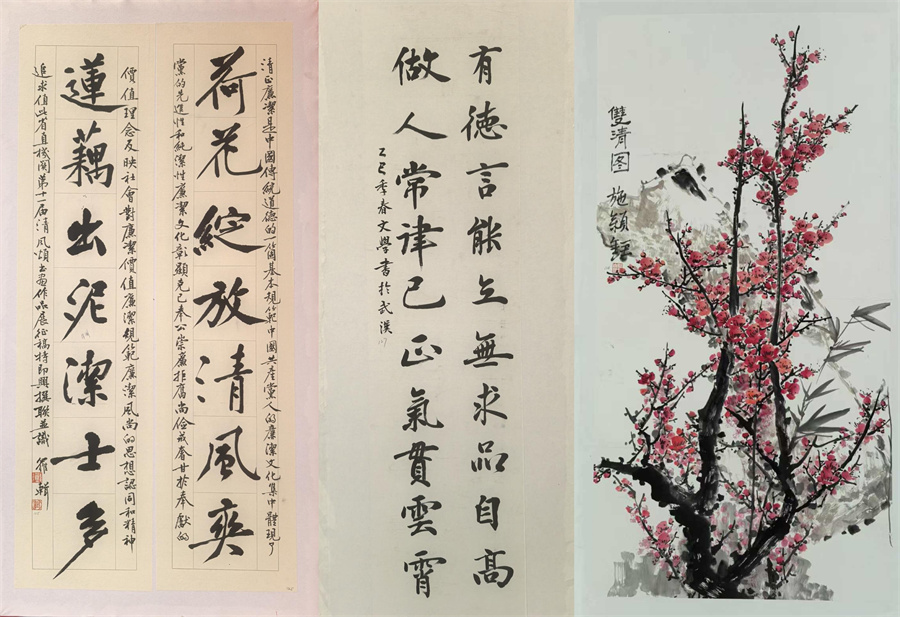 清正廉潔是中國傳統道德的一箇基本規範中國共產黨人的廉潔文化集中體現了
荷花綻放清風爽
黨的先進性和純潔性廉潔文化彰顯克己奉公崇廉拒腐尚儉戒奢甘於奉獻的
價值理念反映社會對廉潔價值廉潔規範廉潔風尚的思想認同和精神
蓮藕出泥潔士多
追求值此省直機關第十一屆清風頌書畫作品展征稿特即興撰聯並識
有德言能立無求品自高
做人常律己正氣貫雲霄
乙巳季春文學書於武漢
雙清图 施穎